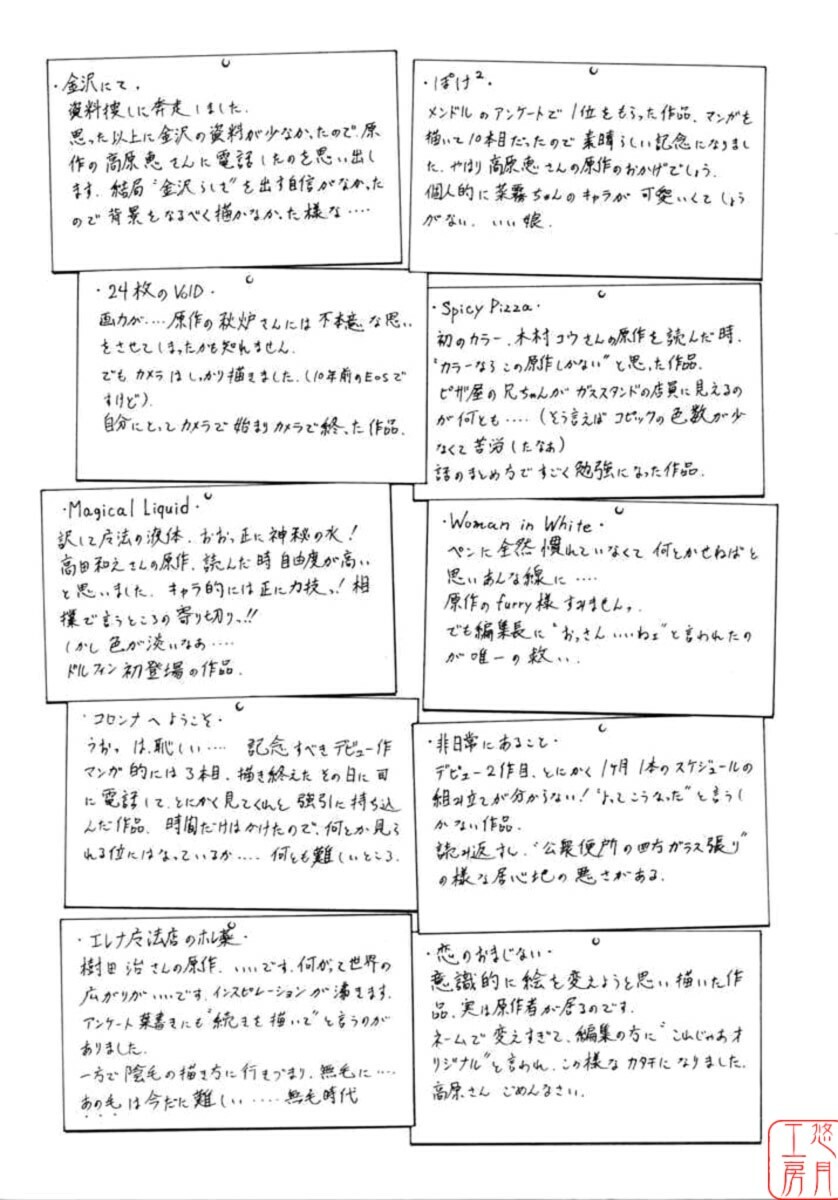 ・金沢にて・
資料捜しに奔走しました。
思った以上に金沢の資料が少なかったので、原
作の高原恵さんに電話したのを思い出し
ます。結局"金沢らしさ"を出す自信がなかった
ので背景をなるべく描かなかった様な‥‥
・ぽけ²・
メンドルのアンケートで1位をもらった作品。マンガを
描いて10本目だったので素晴らしい記念になりまし
た。やはり高原恵さんの原作のおかげでしょう。
個人的に菜霧ちゃんのキャラが可愛いくてしょう
がない。いい娘。
・24枚のVOID・
画力が‥‥原作の秋炉さんには不本意な思い
をさせてしまったかも知れません。
でもカメラはしっかり描きました。(10年前のEOSで
すけど)。
自分にとってカメラで始まりカメラで終った作品。
・Spicy Pizza・
初のカラー。木村コウさんの原作を読んだ時、
"カラーならこの原作しかない"と思った作品。
ピザ屋の兄ちゃんがガススタンドの店員に見えるの
が何とも‥‥(そう言えばコピックの色数が少
なくて苦労したなぁ)
話のまとめ方ですごく勉強になった作品。
・Magical Liquid・
訳して魔法の液体。おおっ正に神秘の水!
高田和えさんの原作。読んだ時自由度が高い
と思いました。キャラ的には正に力技っ!相
撲で言うところの寄り切りっ!!
しかし色が淡いなぁ‥‥
ドルフィン初登場の作品。
・Woman in White・
ペンに全然慣れていなくて何とかせねばと
思いあんな線に‥‥
原作のfurry様すみませんっ。
でも編集長に"おっさんいいねェ"と言われたの
が唯一の救い。
・コロンナへようこそ・
うおっ は、恥しい‥‥ 記念すべきデビュー作
マンガ的には3本目。描き終えたその日に司
に電話して、とにかく見てくれと強引に持ち込
んだ作品。時間だけはかけたので、何とか見ら
れる位にはなっているか‥‥何とも難しいところ。
・非日常にあること・
デビュー2作目。とにかく1ヶ月1本のスケジュールの
組み立てが分からない!"よってこうなった"と言うし
かない作品。
読み返すし、"公衆便所の四方ガラス張り"
の様な居心地の悪さがある。
・エレナ魔法店のホレ薬・
樹田治さんの原作。いいです。何がって世界の
広がりがいいです。インスピレーションが湧きます。
アンケート葉書きにも"続きを描いて"と言うのが
ありました。
一方で陰毛の描き方に行きづまり、無毛に‥‥
あの毛は今だに難しい‥‥‥無毛時代
・恋のおまじない・
意識的に絵を変えようと思い描いた作
品。実は原作者が居るのです。
ネームで変えすぎて、編集の方に"これじゃあオ
リジナル"と言われ、この様なカタチになりました。
高原さん ごめんなさい。
悠月
工房